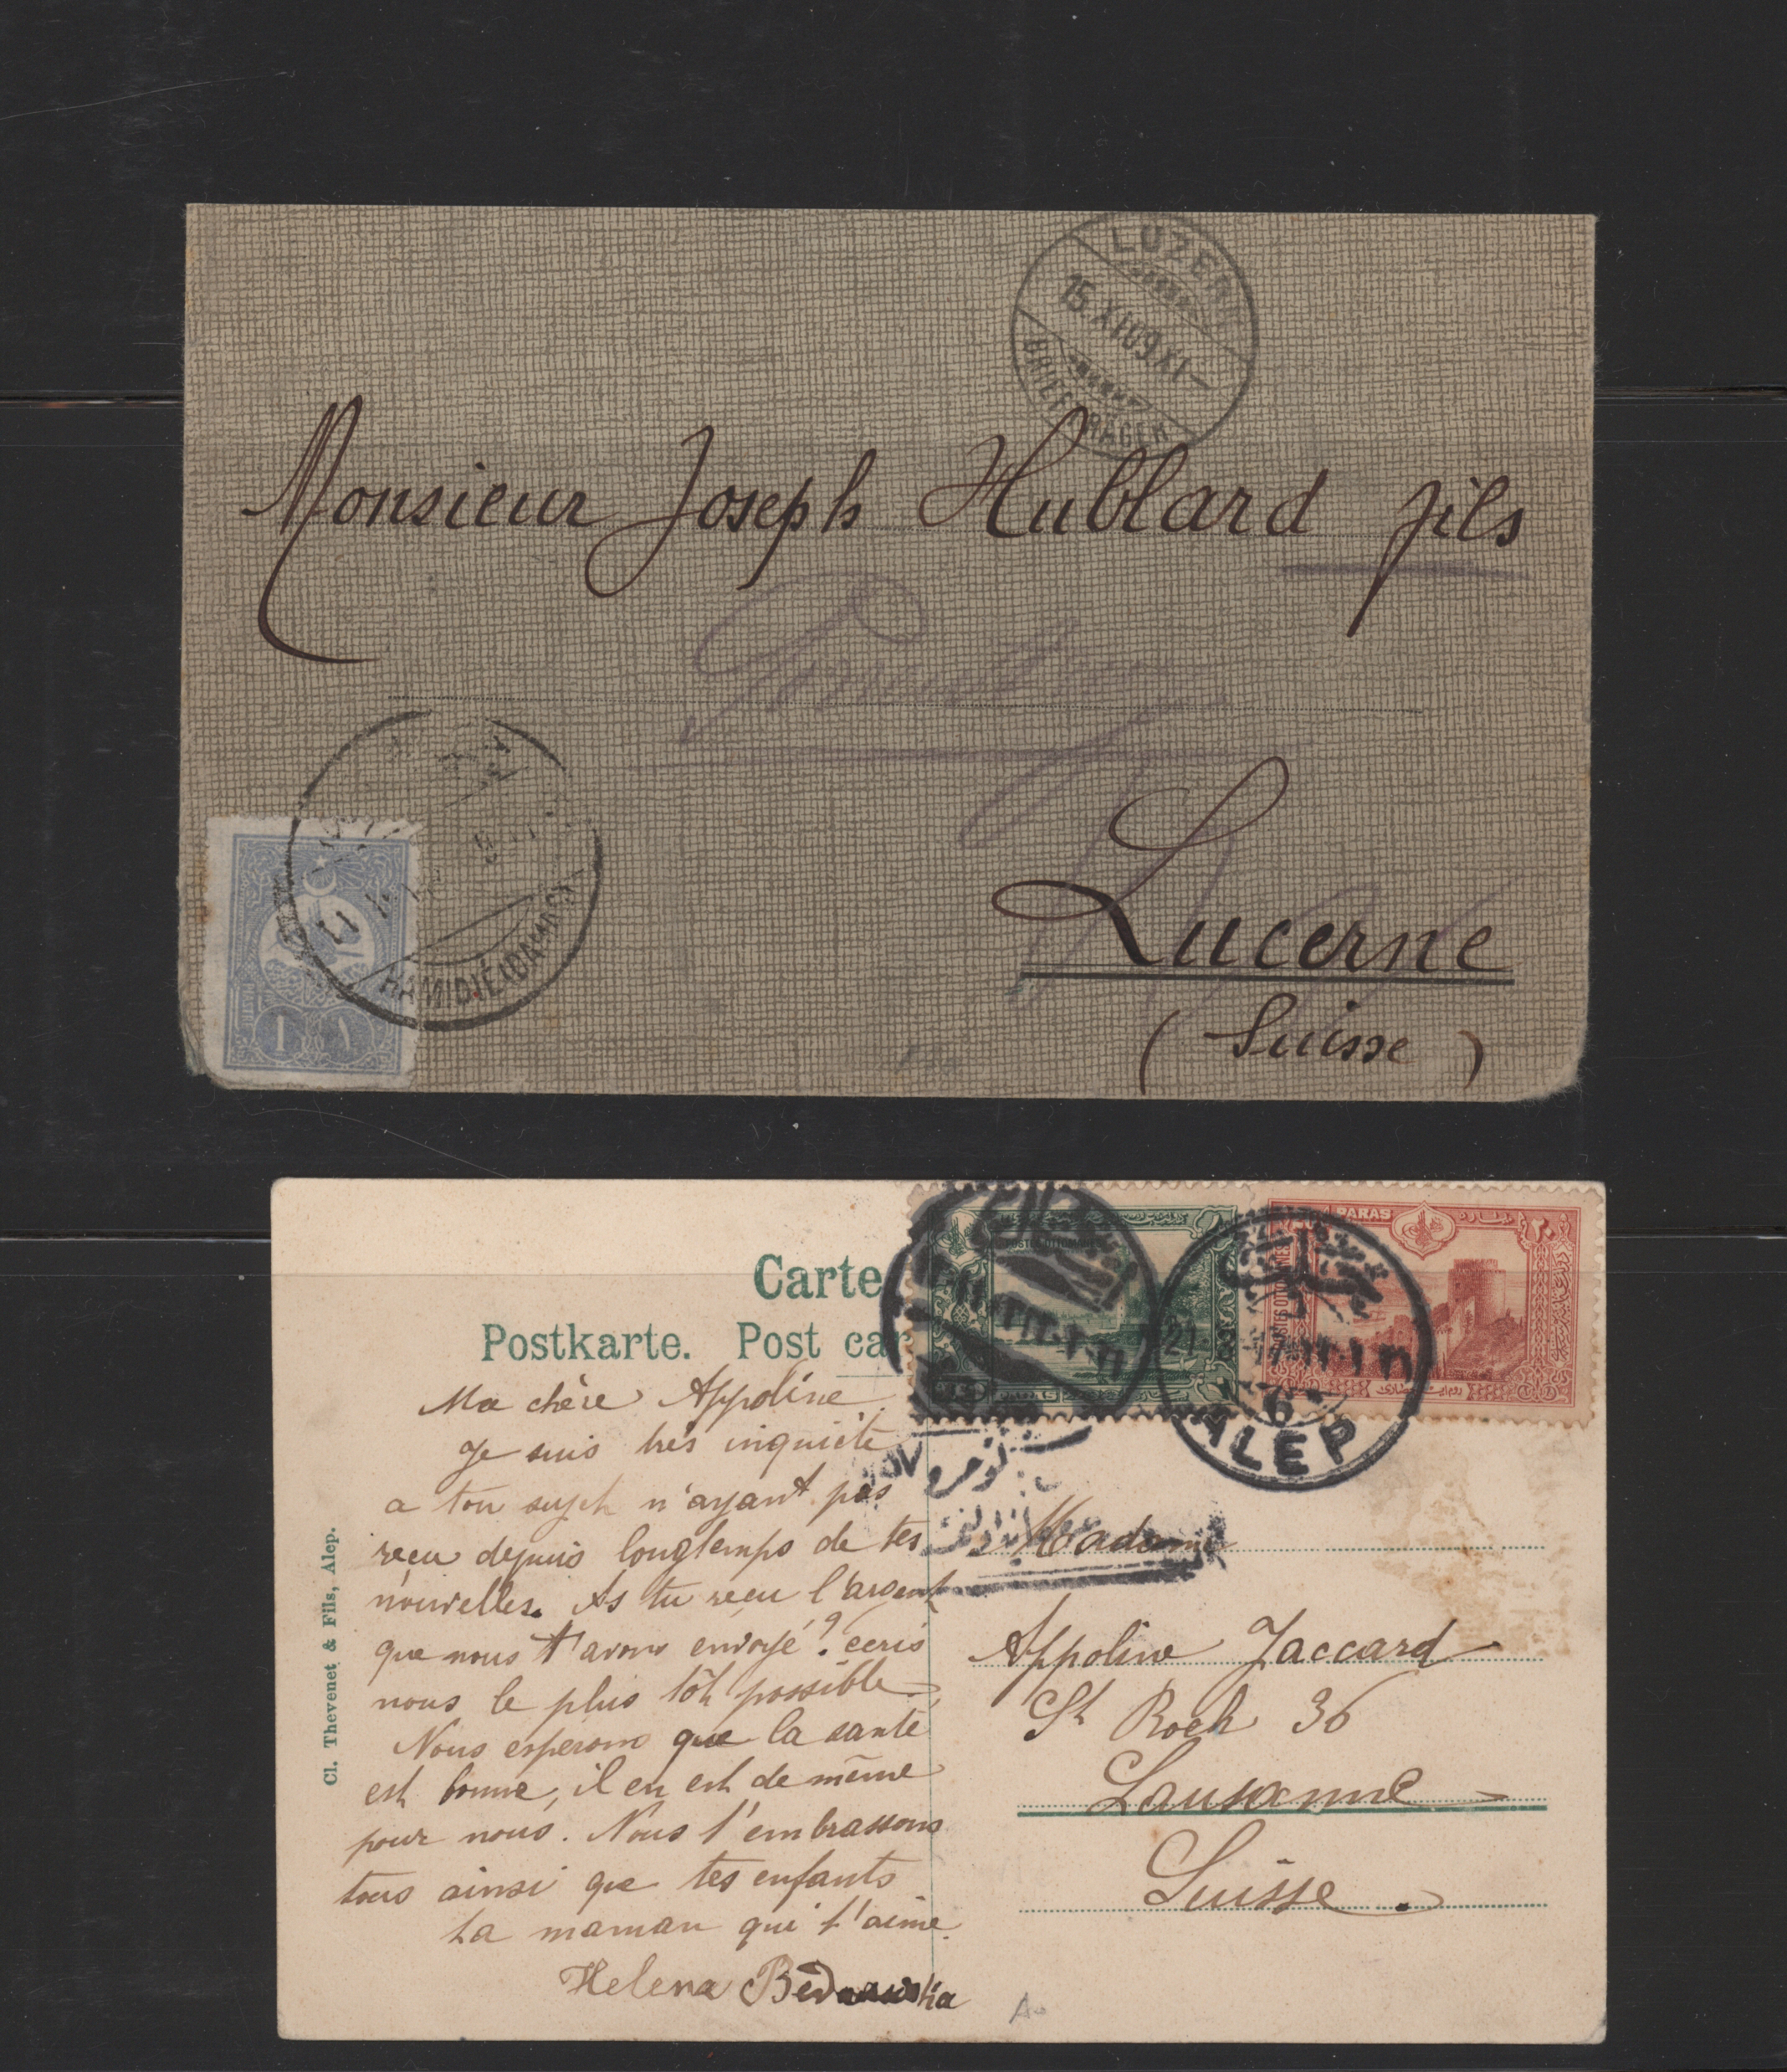 LUZERN
15.XI.09.XI—
BRIEFTRÄGER
Monsieur Joseph Hublard fils
Lucerne
(Suisse)
HAMIDIÉ (DAMAS)
1 ١
Carte
Postkarte. Post car
PARAS
٢٠
21
6
ALEP
Ma chère Appoline
Je suis très inquiète
a ton sujet n'ayant pas
reçu depuis longtemps de tes
nouvelles. As tu reçu l'argent
que nous t'avons envoyé? ecris
nous le plus tôt possible
Nous esperons que la santé
est bonne, il en est de même
pour nous. Nous t'embrassons
tous ainsi que tes enfants
ta maman qui t'aime
Helena
Cl. Thevenet & Fils, Alep.
Madame
Appoline Jaccard
St Roch 36
Lausanne
Suisse.